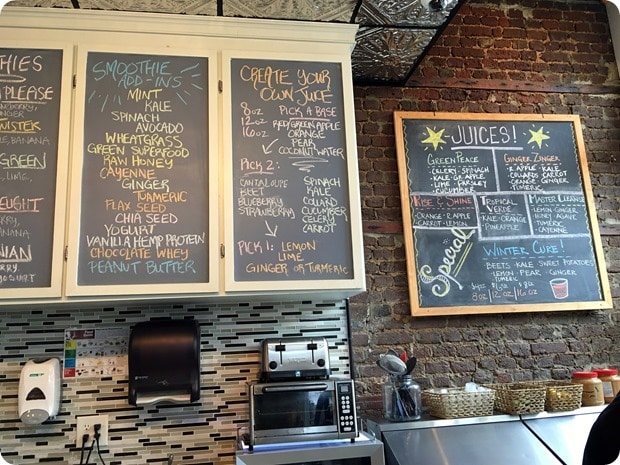 HIES
PLEASE
NISTEK
GREEN
UGHT
NIAN
SMOOTHIE
ADD-INS
MINT
KALE
SPINACH
AVOCADO
WHEATGRASS
GREEN SUPERFOOD
RAW HONEY
CAYENNE
GINGER
TURMERIC
FLAX SEED
CHIA SEED
YOGURT
VANILLA HEMP PROTEIN
CHOCOLATE WHEY
PEANUT BUTTER
CREATE YOUR
OWN JUICE
8oz
12oz
16oz
PICK A BASE
RED/GREEN APPLE
ORANGE
PEAR
COCONUT WATER
PICK 2:
CANTALOUPE
BEET
BLUEBERRY
STRAWBERRY
SPINACH
KALE
COLLARD
CUCUMBER
CELERY
CARROT
PICK 1: LEMON
LIME
GINGER OR TURMERIC
JUICES!
GREEN PEACE
CELERY · SPINACH
KALE · GR. APPLE
LIME · PARSLEY
CUCUMBER
GINGER ZINGER
R APPLE · KALE
COLLARDS · CARROT
ORANGE · GINGER
TURMERIC
RISE & SHINE
ORANGE · R. APPLE
CARROT · LEMON
TROPICAL
VERDE
KALE · ORANGE
PINEAPPLE
MASTER CLEANSE
LEMON · GINGER
HONEY · AGAVE
TURMERIC
CAYENNE
Special
WINTER CURE!
BEETS · KALE · SWEET POTATOES
LEMON · PEAR · GINGER
TURMERIC
8oz 12oz 16oz